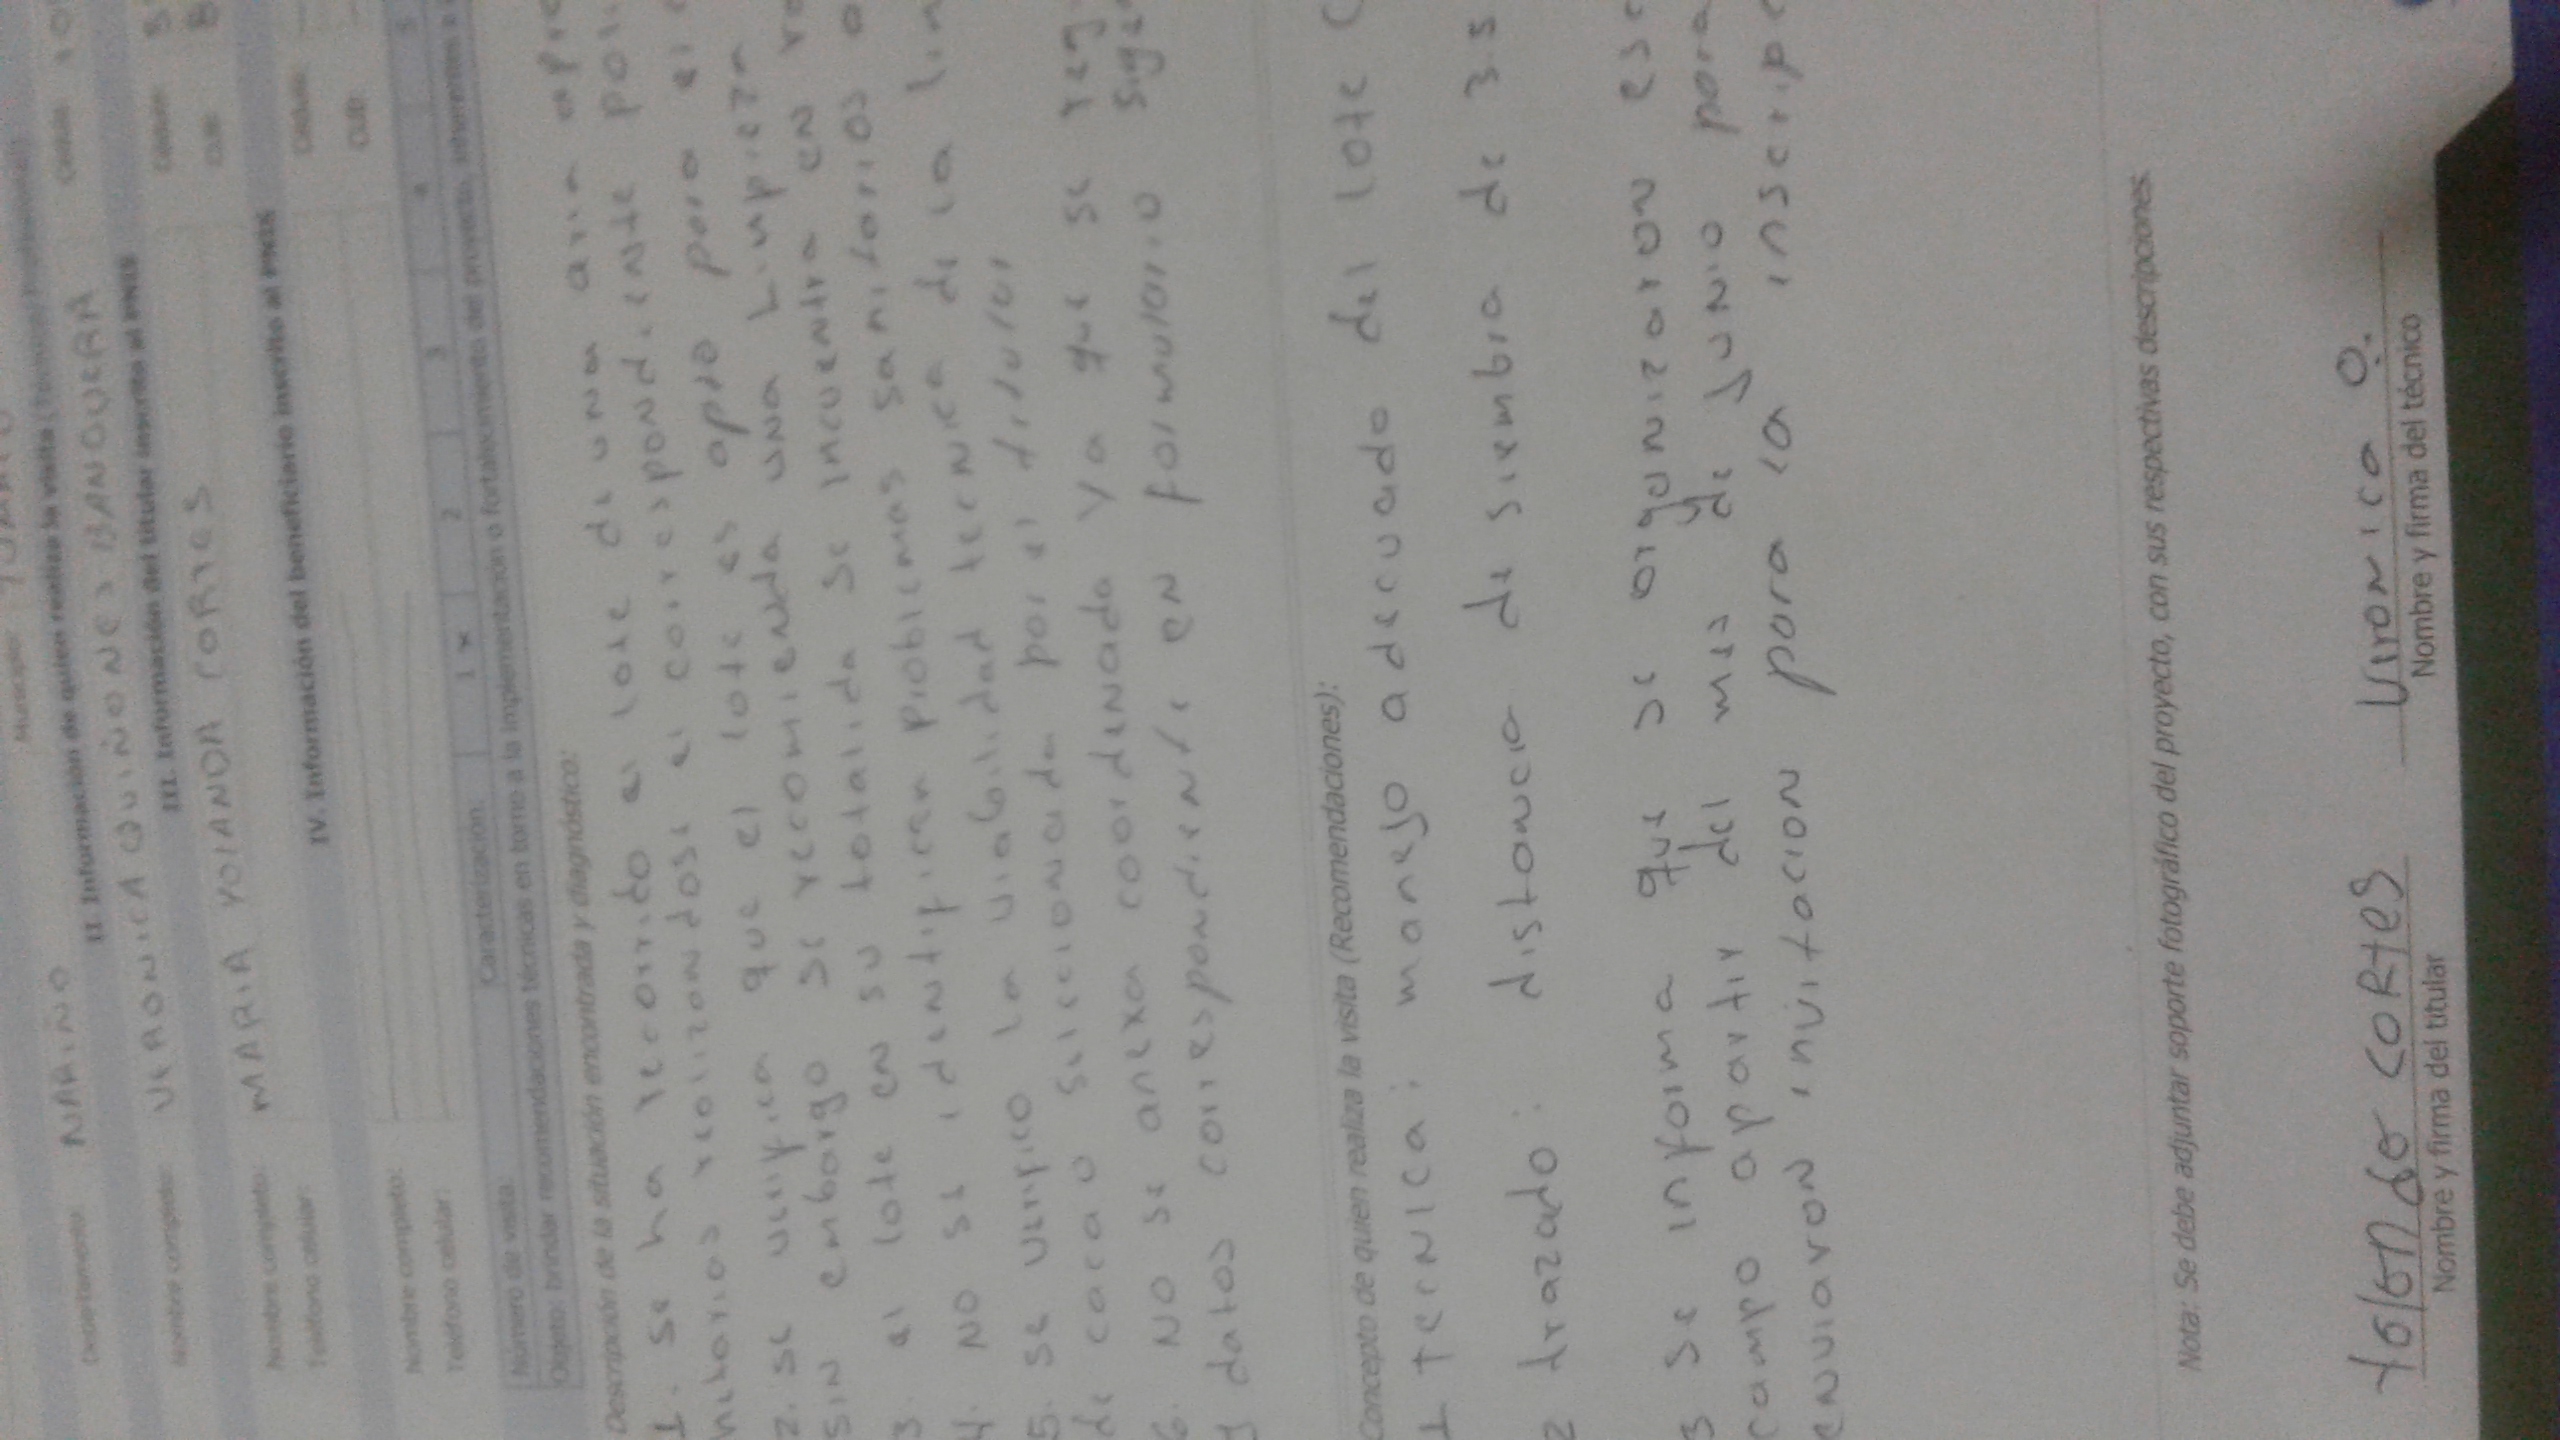 Departamento: NARIÑO Municipio:
II. Información de quien realiza la visita
Nombre completo: VERONICA QUIÑONES BANGUERA Cédula:
III. Información del titular inscrito al PNIS
Nombre completo: MARIA YOLANDA CORTES Cédula:
Teléfono celular: CUB:
IV. Información del beneficiario inscrito al PNIS
Nombre completo: Cédula:
Teléfono celular: CUB:
Número de visita. Caracterización. 1 x 2 3 4 5
Objeto: brindar recomendaciones técnicas en torno a la implementación o fortalecimiento del proyecto, inherentes a
Descripción de la situación encontrada y diagnóstico:
1. se ha recorrido el lote de una aria
hectarias realizandose el correspondiente
2. se verifica que el lote es apto para el
sin embargo se recomienda una Limpieza
3. el lote en su totalida se incuentra en
4. No se identifican problemas sanitarios
5. se verifico la viabilidad tecnica de la
de cacao seleccionada por el titular
6. No se anexa coordenada ya que se
y datos correspondiente en formulario
Concepto de quien realiza la visita (Recomendaciones):
1 Tecnica: manejo adecuado del lote (
2 trazado: distancia de siembra de 3
3 se informa que se organizaron
campo apartir del mes de junio para
enviaron invitacion para la
Nota: Se debe adjuntar soporte fotográfico del proyecto, con sus respectivas descripciones.
Yolanda CORTES Vironica Q.
Nombre y firma del titular Nombre y firma del técnico